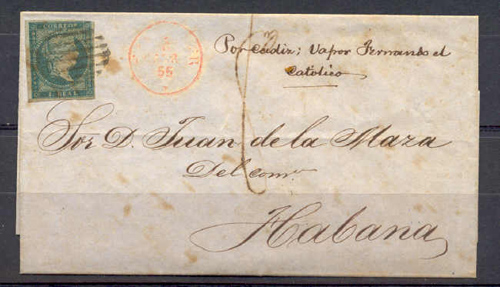 CORREOS
1 REAL
55
Por Cadiz; Vapor Fernando el
Católico
Sor. D. Juan de la Maza
Del comº
Habana